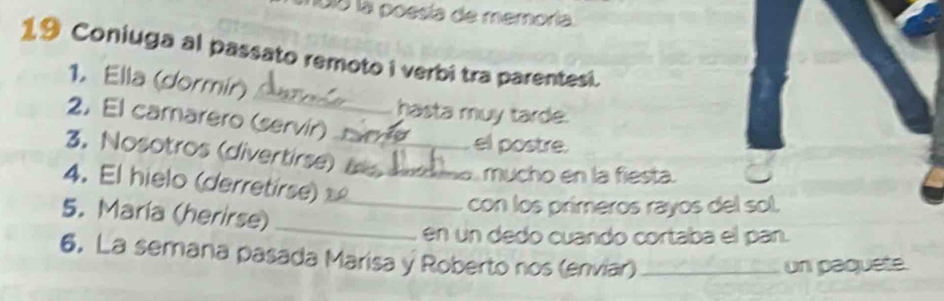 la poesía de memoria.
19 Coniuga al passato remoto i verbi tra parentesi.
1. Ella (dormir) ______ hasta muy tarde.
2. El camarero (servir) ______ el postre.
3. Nosotros (divertirse) ______ mucho en la fiesta.
4. El hielo (derretirse) se ______ con los primeros rayos del sol.
5. María (herirse) ______ en un dedo cuando cortaba el pan.
6. La semana pasada Marisa y Roberto nos (enviar) ______ un paquete.